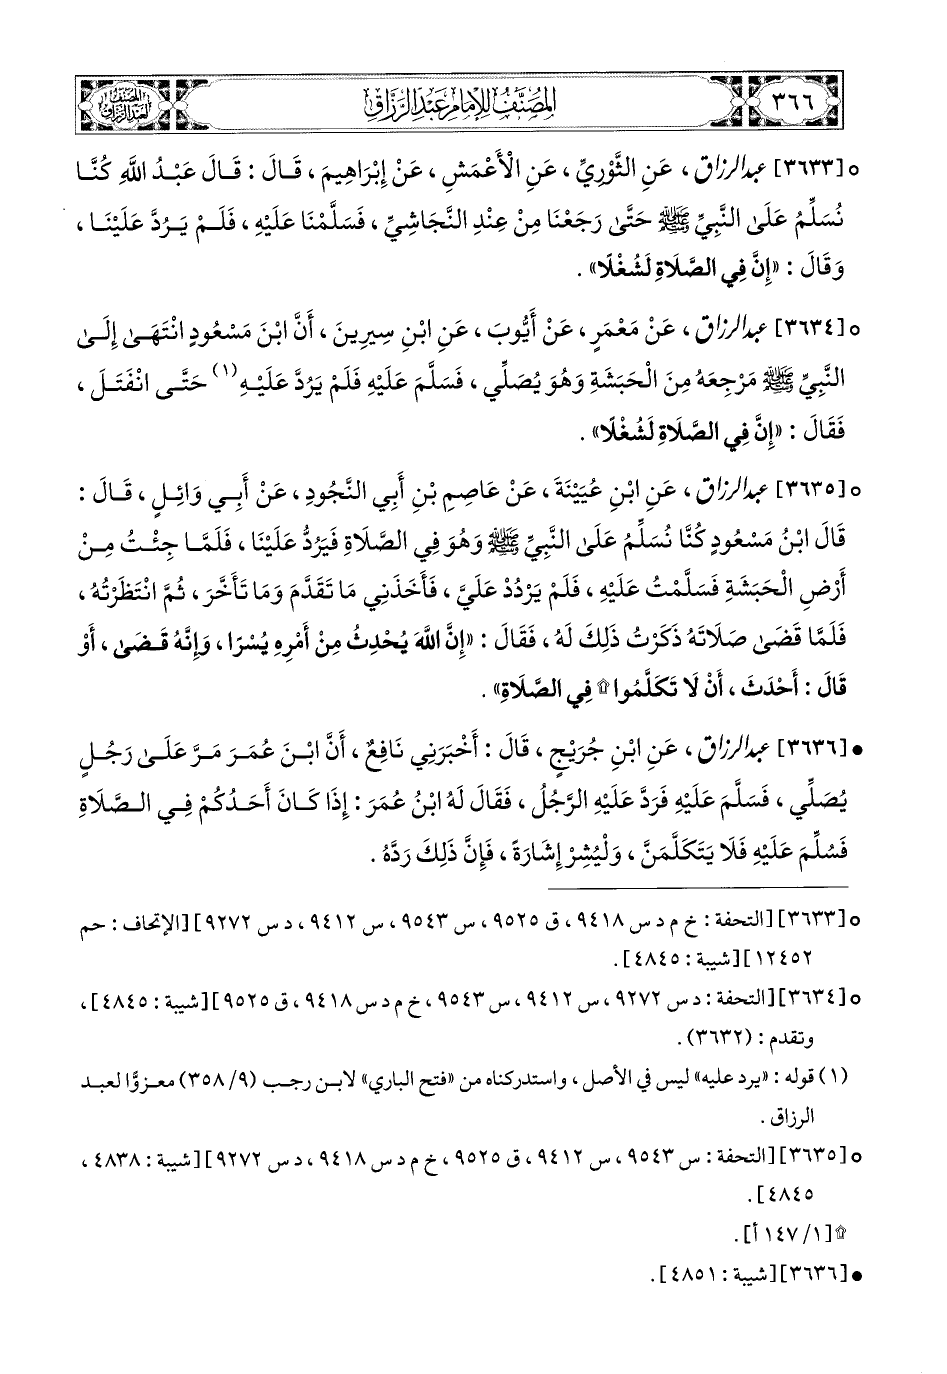 ٣٦٦
المصنف للإمام عبد الرزاق
المصنف لعبد الرزاق
○ [٣٦٣٣] عبد الرزاق ، عَنِ الثَّوْرِيِّ ، عَنِ الْأَعْمَشِ ، عَنْ إِبْرَاهِيمَ ، قَالَ : قَالَ عَبْدُ اللَّهِ كُنَّا
نُسَلِّمُ عَلَى النَّبِيِّ ﷺ حَتَّى رَجَعْنَا مِنْ عِنْدِ النَّجَاشِيِّ ، فَسَلَّمْنَا عَلَيْهِ ، فَلَمْ يَرُدَّ عَلَيْنَا ،
وَقَالَ : «إِنَّ فِي الصَّلَاةِ لَشُغْلًا» .
○ [٣٦٣٤] عبد الرزاق ، عَنْ مَعْمَرٍ ، عَنْ أَيُّوبَ ، عَنِ ابْنِ سِيرِينَ ، أَنَّ ابْنَ مَسْعُودٍ انْتَهَى إِلَى
النَّبِيِّ ﷺ مَرْجِعَهُ مِنَ الْحَبَشَةِ وَهُوَ يُصَلِّي ، فَسَلَّمَ عَلَيْهِ فَلَمْ يَرُدَّ عَلَيْهِ(١) حَتَّى انْفَتَلَ ،
فَقَالَ : «إِنَّ فِي الصَّلَاةِ لَشُغْلًا» .
○ [٣٦٣٥] عبد الرزاق ، عَنِ ابْنِ عُيَيْنَةَ ، عَنْ عَاصِمِ بْنِ أَبِي النَّجُودِ ، عَنْ أَبِي وَائِلٍ ، قَالَ :
قَالَ ابْنُ مَسْعُودٍ كُنَّا نُسَلِّمُ عَلَى النَّبِيِّ ﷺ وَهُوَ فِي الصَّلَاةِ فَيَرُدُّ عَلَيْنَا ، فَلَمَّا جِئْتُ مِنْ
أَرْضِ الْحَبَشَةِ فَسَلَّمْتُ عَلَيْهِ ، فَلَمْ يَرْدُدْ عَلَيَّ ، فَأَخَذَنِي مَا تَقَدَّمَ وَمَا تَأَخَّرَ ، ثُمَّ انْتَظَرْتُهُ ،
فَلَمَّا قَضَى صَلَاتَهُ ذَكَرْتُ ذَلِكَ لَهُ ، فَقَالَ : «إِنَّ اللَّهَ يُحْدِثُ مِنْ أَمْرِهِ يُسْرًا ، وَإِنَّهُ قَضَى ، أَوْ
قَالَ : أَحْدَثَ ، أَنْ لَا تَكَلَّمُوا ۩ فِي الصَّلَاةِ» .
● [٣٦٣٦] عبد الرزاق ، عَنِ ابْنِ جُرَيْجٍ ، قَالَ : أَخْبَرَنِي نَافِعٌ ، أَنَّ ابْنَ عُمَرَ مَرَّ عَلَى رَجُلٍ
يُصَلِّي ، فَسَلَّمَ عَلَيْهِ فَرَدَّ عَلَيْهِ الرَّجُلُ ، فَقَالَ لَهُ ابْنُ عُمَرَ : إِذَا كَانَ أَحَدُكُمْ فِي الصَّلَاةِ
فَسُلِّمَ عَلَيْهِ فَلَا يَتَكَلَّمَنَّ ، وَلْيُشِرْ إِشَارَةً ، فَإِنَّ ذَلِكَ رَدُّهُ .
○ [٣٦٣٣] [التحفة : خ م د س ٩٤١٨ ، ق ٩٥٢٥ ، س ٩٥٤٣ ، س ٩٤١٢ ، د س ٩٢٧٢] [الإتحاف : حم
١٢٤٥٢] [شيبة : ٤٨٤٥] .
○ [٣٦٣٤] [التحفة : د س ٩٢٧٢ ، س ٩٤١٢ ، س ٩٥٤٣ ، خ م د س ٩٤١٨ ، ق ٩٥٢٥] [شيبة : ٤٨٤٥] ،
وتقدم : (٣٦٣٢) .
(١) قوله : «يرد عليه» ليس في الأصل ، واستدركناه من «فتح الباري» لابن رجب (٩/ ٣٥٨) معزوًّا لعبد
الرزاق .
○ [٣٦٣٥] [التحفة : س ٩٥٤٣ ، س ٩٤١٢ ، ق ٩٥٢٥ ، خ م د س ٩٤١٨ ، د س ٩٢٧٢] [شيبة : ٤٨٣٨ ،
٤٨٤٥] .
۩ [١/ ١٤٧ أ] .
● [٣٦٣٦] [شيبة : ٤٨٥١] .